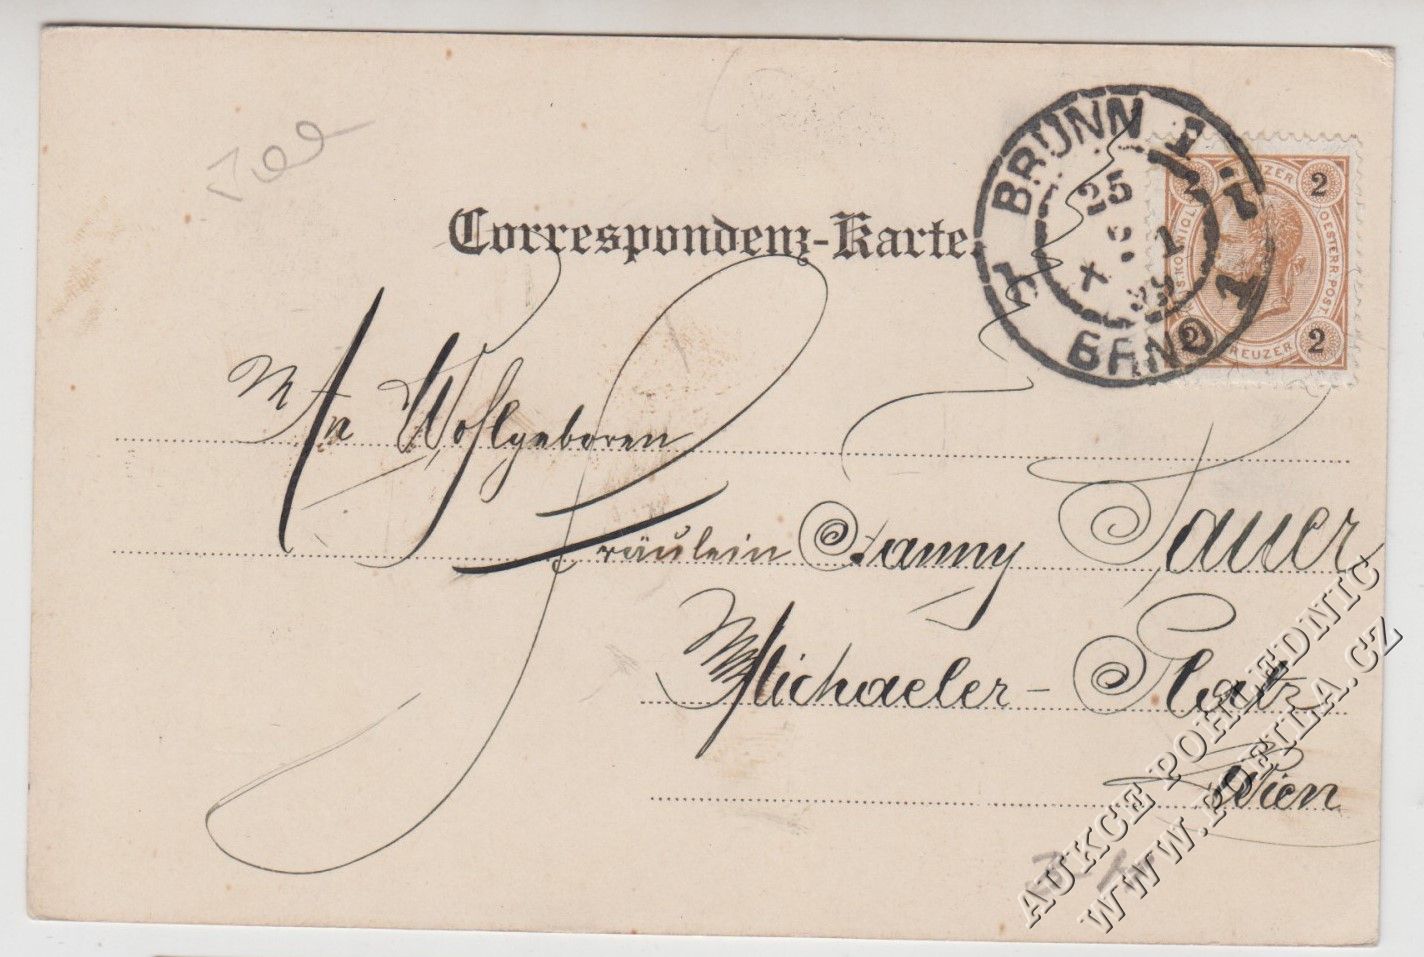 Correspondenz-Karte.
BRÜNN 1
25
99
BRNO 1
KREUZER
2
OESTERR. POST
2
2
KREUZER
An Wohlgeboren
Fräulein Fanny Sauer
Michaeler-Platz
Wien
AUKCE POHLEDNIC
WWW.POFILA.CZ